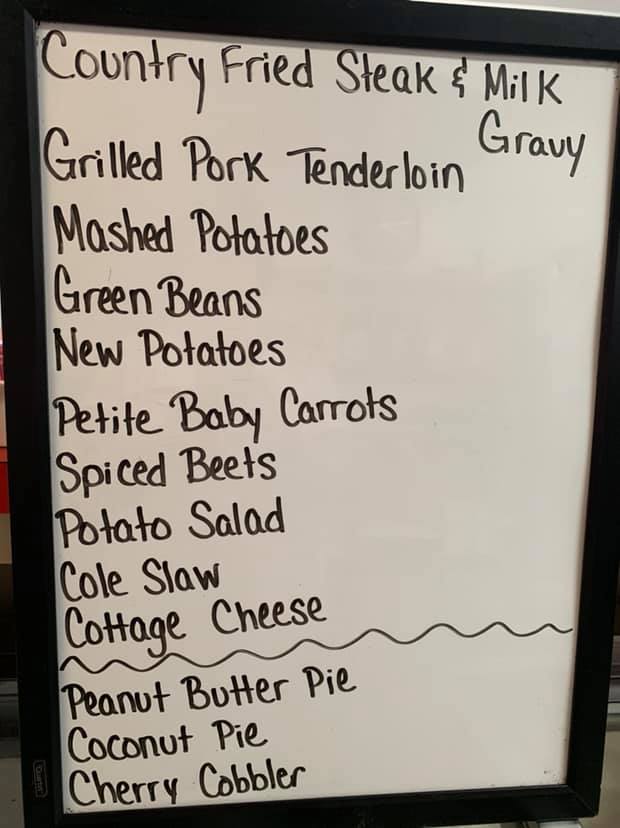 Country Fried Steak & Milk
Gravy
Grilled Pork Tenderloin
Mashed Potatoes
Green Beans
New Potatoes
Petite Baby Carrots
Spiced Beets
Potato Salad
Cole Slaw
Cottage Cheese
Peanut Butter Pie
Coconut Pie
Cherry Cobbler